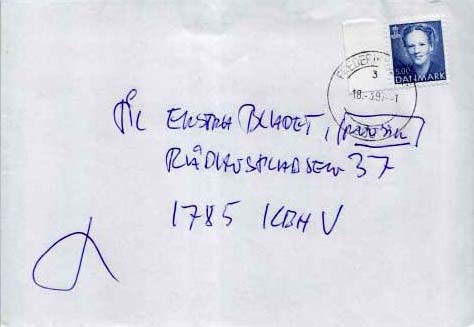 FREDERIK
3
5.00
DANMARK
18.-3.97.-1
Til EKSTRA BLADET,
RÅDHUSPLADSEN 37
1785 KBH V